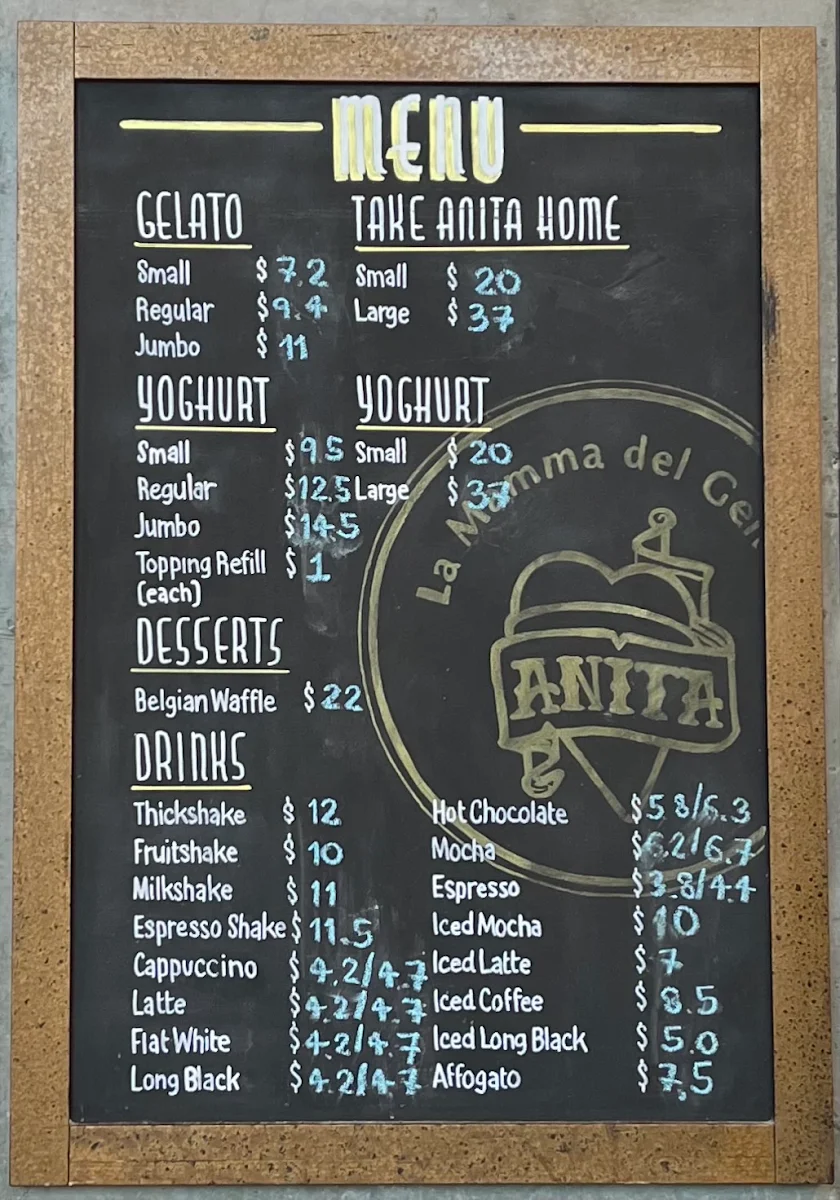 MENU
GELATO
Small $7.2
Regular $9.4
Jumbo $11
TAKE ANITA HOME
Small $20
Large $37
YOGHURT
Small $9.5
Regular $12.5
Jumbo $14.5
Topping Refill $1
(each)
YOGHURT
Small $20
Large $37
DESSERTS
Belgian Waffle $22
DRINKS
Thickshake $12
Fruitshake $10
Milkshake $11
Espresso Shake $11.5
Cappuccino $4.2/4.7
Latte $4.2/4.7
Flat White $4.2/4.7
Long Black $4.2/4.7
Hot Chocolate $5.8/6.3
Mocha $6.2/6.7
Espresso $3.8/4.4
Iced Mocha $10
Iced Latte $7
Iced Coffee $8.5
Iced Long Black $5.0
Affogato $7.5
La Mamma del Gel
ANITA